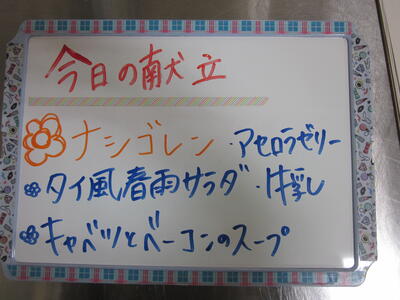 今日の献立
ナシゴレン・アセロラゼリー
タイ風春雨サラダ・牛乳
キャベツとベーコンのスープ